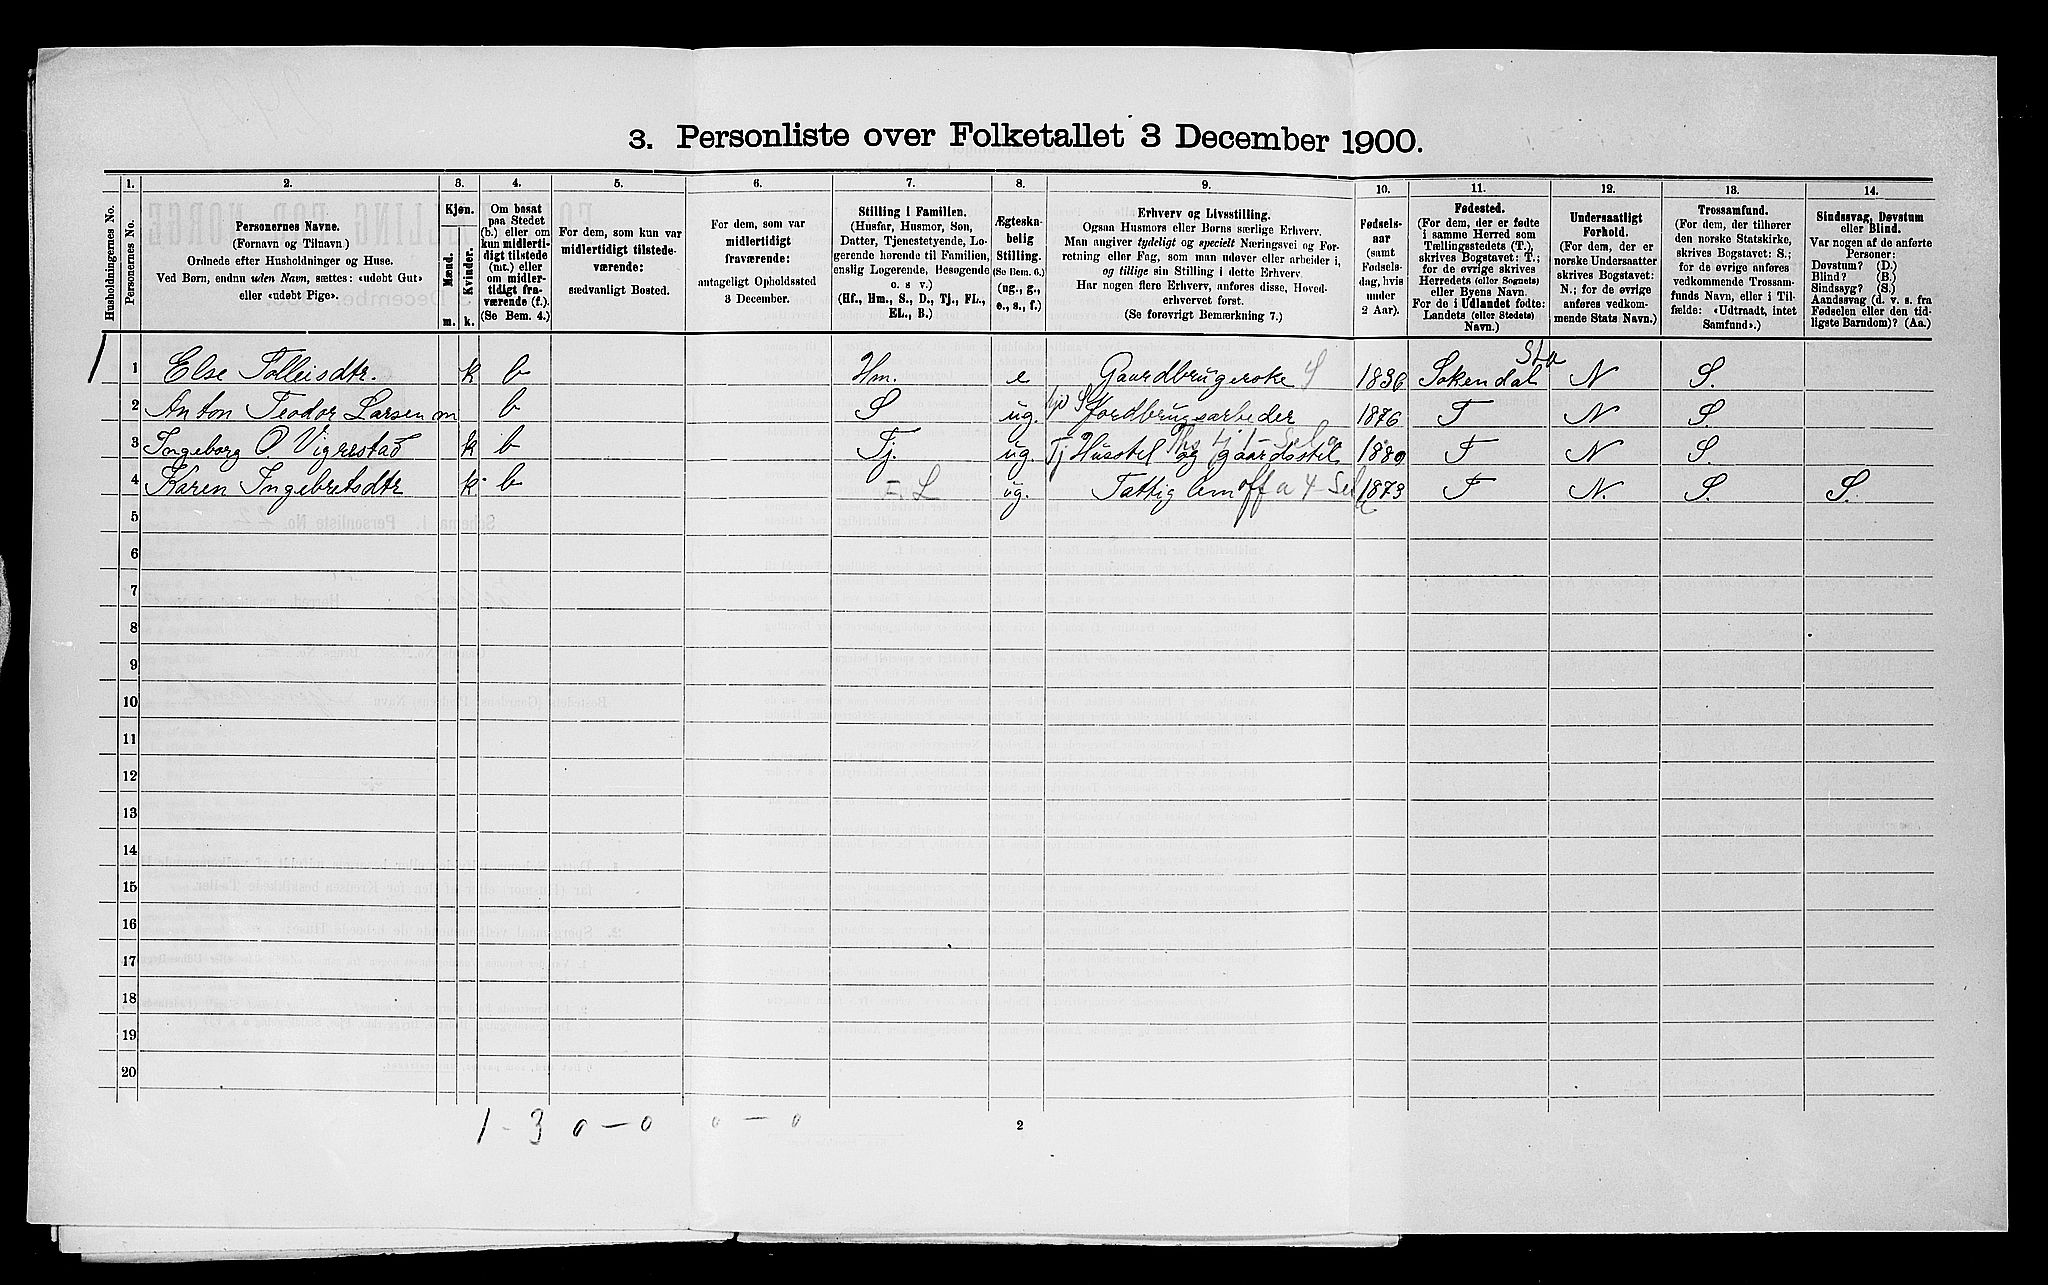 3. Personliste over Folketallet 3 December 1900.
1. 2. 3. 4. 5. 6. 7. 8. 9. 10. 11. 12. 13. 14.
Husholdningernes No.
Personernes No.
Personernes Navne.
(Fornavn og Tilnavn)
Ordnede efter Husholdninger og Huse.
Ved Børn, endnu uden Navn, sættes: «udøbt Gut»
eller «udøbt Pige».
Kjøn.
Mænd.
Kvinder.
m. k.
Om bosat
paa Stedet
(b.) eller om
kun midlerti-
digt tilstede
(mt.) eller
om midler-
tidigt fra-
værende (f.).
(Se Bem. 4.)
For dem, som kun var
midlertidigt tilstede-
værende:
sædvanligt Bosted.
For dem, som var
midlertidigt
fraværende:
antageligt Opholdssted
3 December.
Stilling i Familien.
(Husfar, Husmor, Søn,
Datter, Tjenestetyende, Lo-
gerende hørende til Familien,
enslig Logerende, Besøgende
o. s v.)
(Hf., Hm., S., D., Tj., FL.,
EL., B.)
Ægteska-
belig
Stilling.
(Se Bem. 6.)
(ug., g.,
e., s., f.)
Erhverv og Livsstilling.
Ogsaa Husmors eller Børns særlige Erhverv.
Man angiver tydeligt og specielt Næringsvei og For-
retning eller Fag, som man udøver eller arbeider i,
og tillige sin Stilling i dette Erhverv.
Har nogen flere Erhverv, anføres disse, Hoved-
erhvervet først.
(Se forøvrigt Bemærkning 7.)
Fødsels-
aar
(samt
Fødsels-
dag, hvis
under
2 Aar).
Fødested.
(For dem, der er fødte
i samme Herred som
Tællingsstedets (T.),
skrives Bogstavet: T.;
for de øvrige skrives
Herredets (eller Sognets)
eller Byens Navn.
For de i Udlandet fødte:
Landets (eller Stedets)
Navn.)
Undersaatligt
Forhold.
(For de øvrige
norske Undersaatter
skrives Bogstavet:
N.; for de øvrige
anføres vedkom-
mende Stats Navn.)
Trossamfund.
(For dem, der tilhører
den norske Statskirke,
skrives Bogstavet: S.;
for de øvrige anføres
vedkommende Trossam-
funds Navn, eller i Til-
fælde: «Udtraadt, intet
Samfund».)
Sindssvag, Døvstum
eller Blind.
Var nogen af de anførte
Personer:
Døvstum? (D.)
Blind? (B.)
Sindssyg? (S.)
Aandssvag (d. v. s. fra
Fødselen eller den tid-
ligste Barndom)? (Aa.)
1 1 Else Tolleisdtr. k b Hm. e Gaardbrugerske S 1836 Sokendal Sta N S.
2 Anton Teodor Larsen m b S ug. Jordbrugsarbeder 1876 T N S.
3 Ingeborg O. Vigrestad k b Tj. ug. Tj Husstel og gaardsstel 1880 T N S.
4 Karen Ingebretsdtr k. b L ug. Fattig lem off a 4 1873 T N. S. S.
5
6
7
8
9
10
11
12
13
14
15
16
17
18
19
20
1 - 3 0 - 0 0 - 0
2